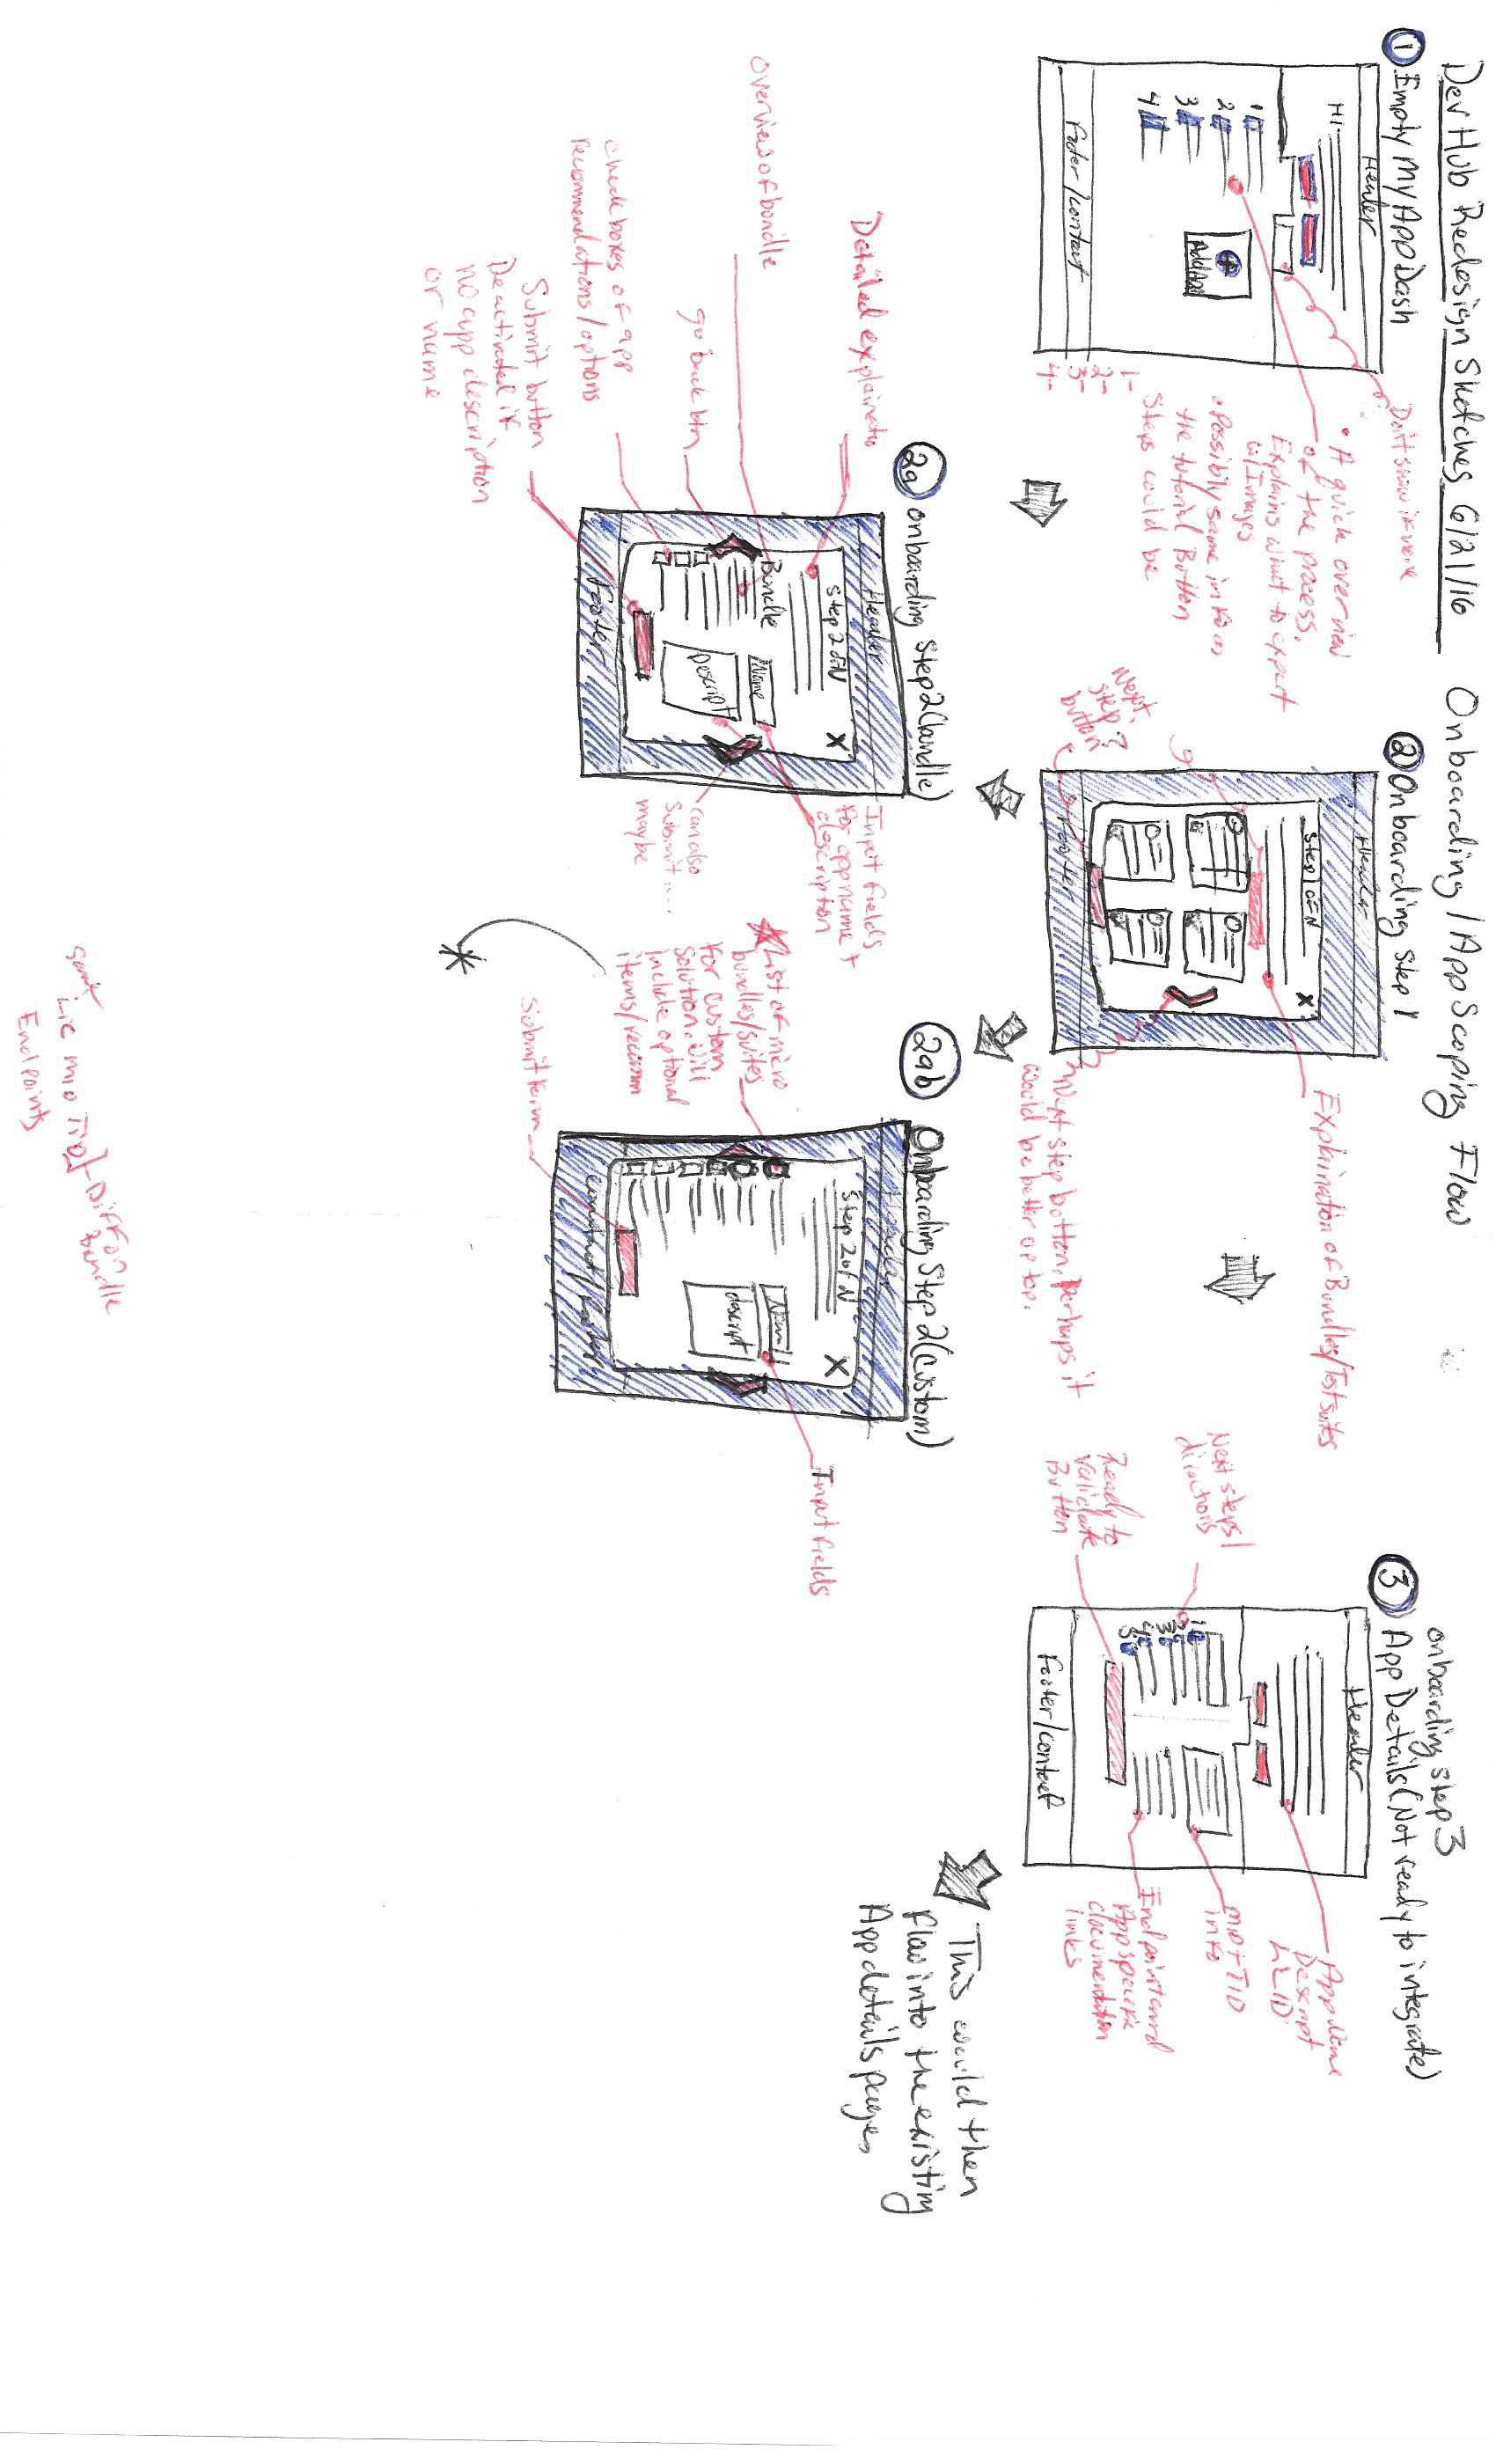 Dev Hub Redesign Sketches 6/21/16
Onboarding/App Scoping Flow
1 Empty My App Dash
Header
Hi
1
2
3
4
Add App
Footer/contact
Don't show if none
• A quick overview
of the process.
Explains what to expect
w/Images
• Possibily same info as
the tutorial Button
Steps could be
1-
2-
3-
4-
2 Onboarding Step 1
Header
Step 1 of N
X
Footer
Next
step?
button
Explaination of Bundles/Test suites
Next step button, perhaps it
would be better up top.
onboarding step 3
3 App Details (Not ready to integrate)
Header
1
2
3
4
5
Footer/contact
Next steps/
directions
Ready to
validate
Button
App name
Descript
LID
MID + TID
info
Endpoint and
App specific
documentation
links
This would then
flow into the existing
App details pages
2a onboarding Step 2 (bundle)
Header
Step 2 of N
X
Bundle
Name
Descript
Footer
Detailed explainatio
overview of bundle
go back btn
check boxes of app
recommendations/options
Submit button
Deactivated if
no app description
or name
Input fields
for app name +
description
can also
submit...
maybe
2ab Onboarding Step 2 (custom)
Header
Step 2 of N
X
Name
descript
List of micro
bundles/suites
for custom
solution. will
include optional
items/recomm
Submit form
Input fields
*
Lic MID TID
Endpoints
Diff on
bundle